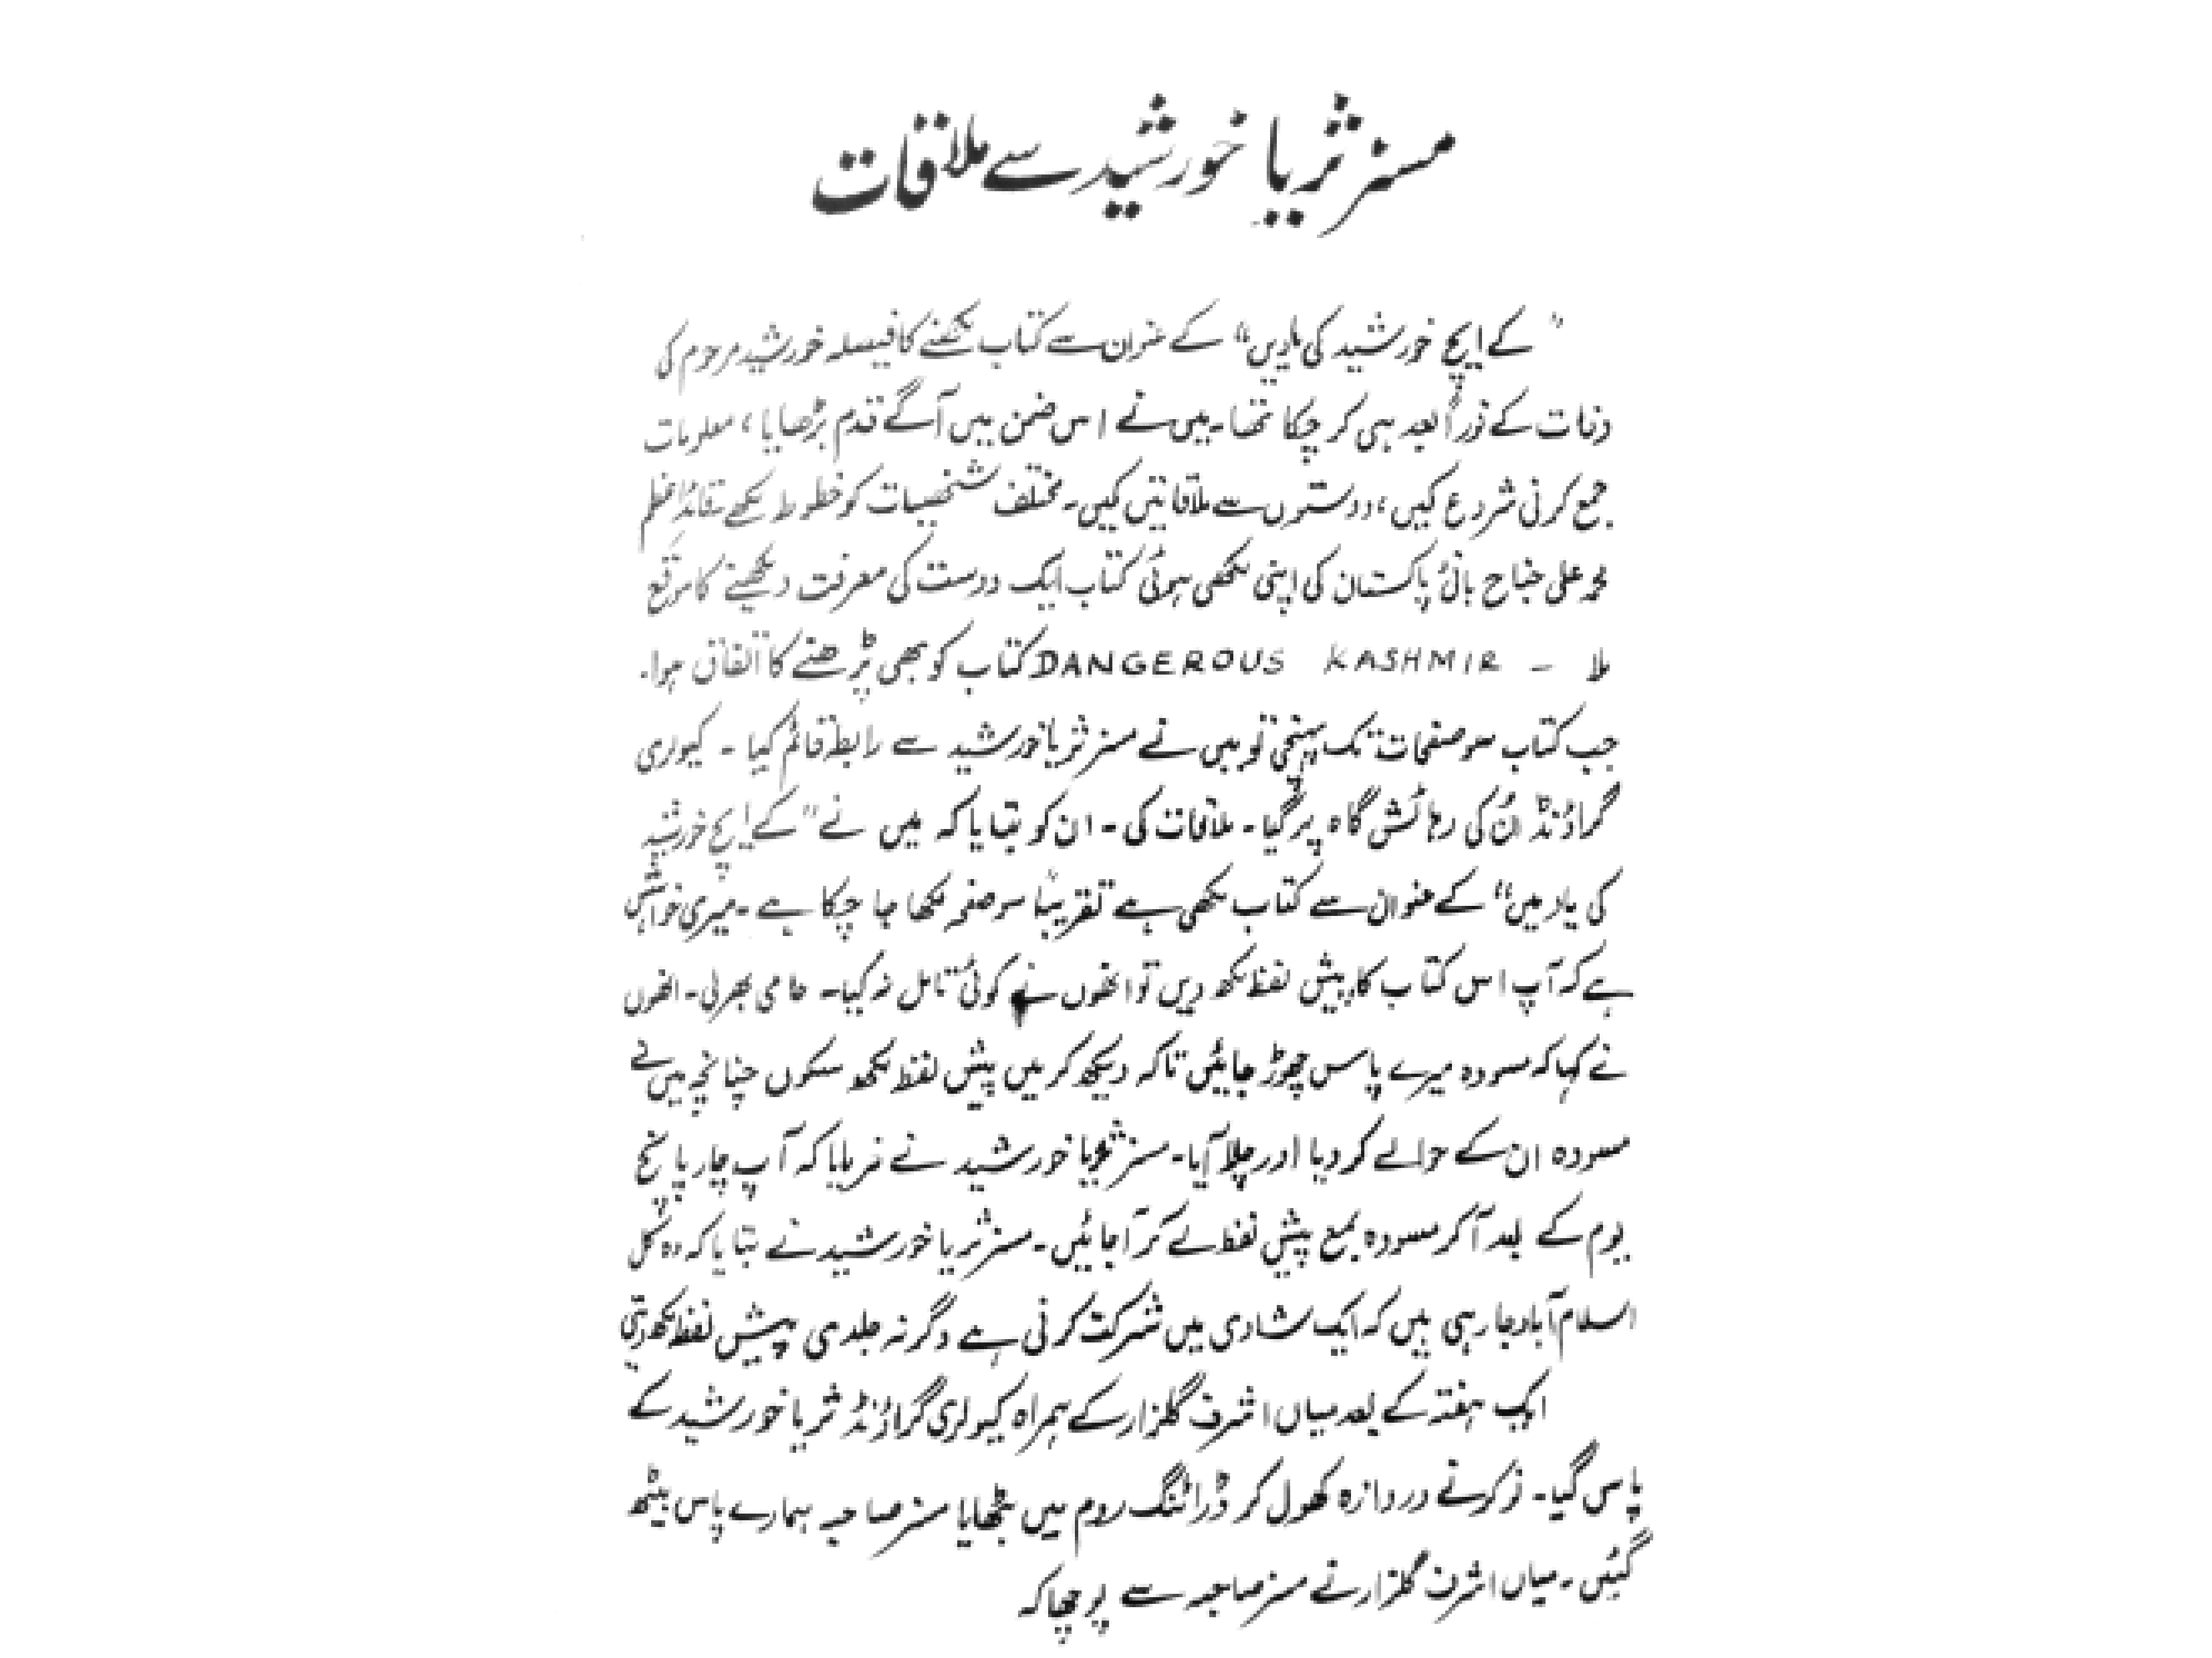 مسز ثریا خورشید سے ملاقات
"کے ایچ خورشید کی یاد میں" کے عنوان سے کتاب لکھنے کا فیصلہ خورشید مرحوم کی
وفات کے فوراً بعد ہی کر چکا تھا۔ میں نے اس ضمن میں آگے قدم بڑھایا، معلومات
جمع کرنی شروع کیں، دوستوں سے ملاقاتیں کیں۔ مختلف شخصیات کو خطوط لکھے۔ قائد اعظم
محمد علی جناح بانیٔ پاکستان کی اپنی لکھی ہوئی کتاب ایک دوست کی معرفت دیکھنے کا موقع
ملا ۔ DANGEROUS KASHMIR کتاب کو بھی پڑھنے کا اتفاق ہوا۔
جب کتاب سو صفحات تک پہنچی تو میں نے مسز ثریا خورشید سے رابطہ قائم کیا ۔ کیولری
گراؤنڈ اُن کی رہائش گاہ پر گیا۔ ملاقات کی۔ ان کو بتایا کہ میں نے "کے ایچ خورشید
کی یاد میں" کے عنوان سے کتاب لکھی ہے تقریباً سو صفحہ لکھا جا چکا ہے۔ میری خواہش
ہے کہ آپ اس کتاب کا پیش لفظ لکھ دیں تو انھوں نے کوئی تامل نہ کیا۔ حامی بھر لی۔ انھوں
نے کہا کہ مسودہ میرے پاس چھوڑ جائیں تاکہ دیکھ کر میں پیش لفظ لکھ سکوں چنانچہ میں نے
مسودہ ان کے حوالے کر دیا اور چلا آیا۔ مسز ثریا خورشید نے فرمایا کہ آپ چار پانچ
یوم کے بعد آ کر مسودہ بمع پیش لفظ لے کر آ جائیں۔ مسز ثریا خورشید نے بتایا کہ وہ کل
اسلام آباد جا رہی ہیں کہ ایک شادی میں شرکت کرنی ہے وگرنہ جلد ہی پیش لفظ لکھ دیتی
ایک ہفتہ کے بعد میاں اشرف گلزار کے ہمراہ کیولری گراؤنڈ ثریا خورشید کے
پاس گیا۔ نوکر نے دروازہ کھول کر ڈرائنگ روم میں بٹھایا مسز صاحبہ ہمارے پاس بیٹھ
گئیں۔ میاں اشرف گلزار نے مسز صاحبہ سے پوچھا کہ